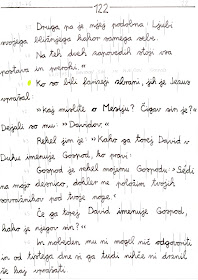 122
Druga pa je njej podobna: Ljubi
svojega bližnjega kakor samega sebe.
Na teh dveh zapovedih stoji vsa
postava in preroki."
Ko so bili farizeji zbrani, jih je Jezus
vprašal:
"Kaj mislite o Mesiju? Čigav sin je?"
Dejali so mu: "Davidov."
Rekel jim je: "Kako ga torej David v
Duhu imenuje Gospod, ko pravi:
Gospod je rekel mojemu Gospodu: Sédi
na mojo desnico, dokler ne položim tvojih
sovražnikov pod tvoje noge."
Če ga torej David imenuje Gospod,
kako je njegov sin?"
In nobeden mu ni mogel nič odgovoriti
in od tistega dne ni ga tudi nihče ni drznil
še kaj vprašati.